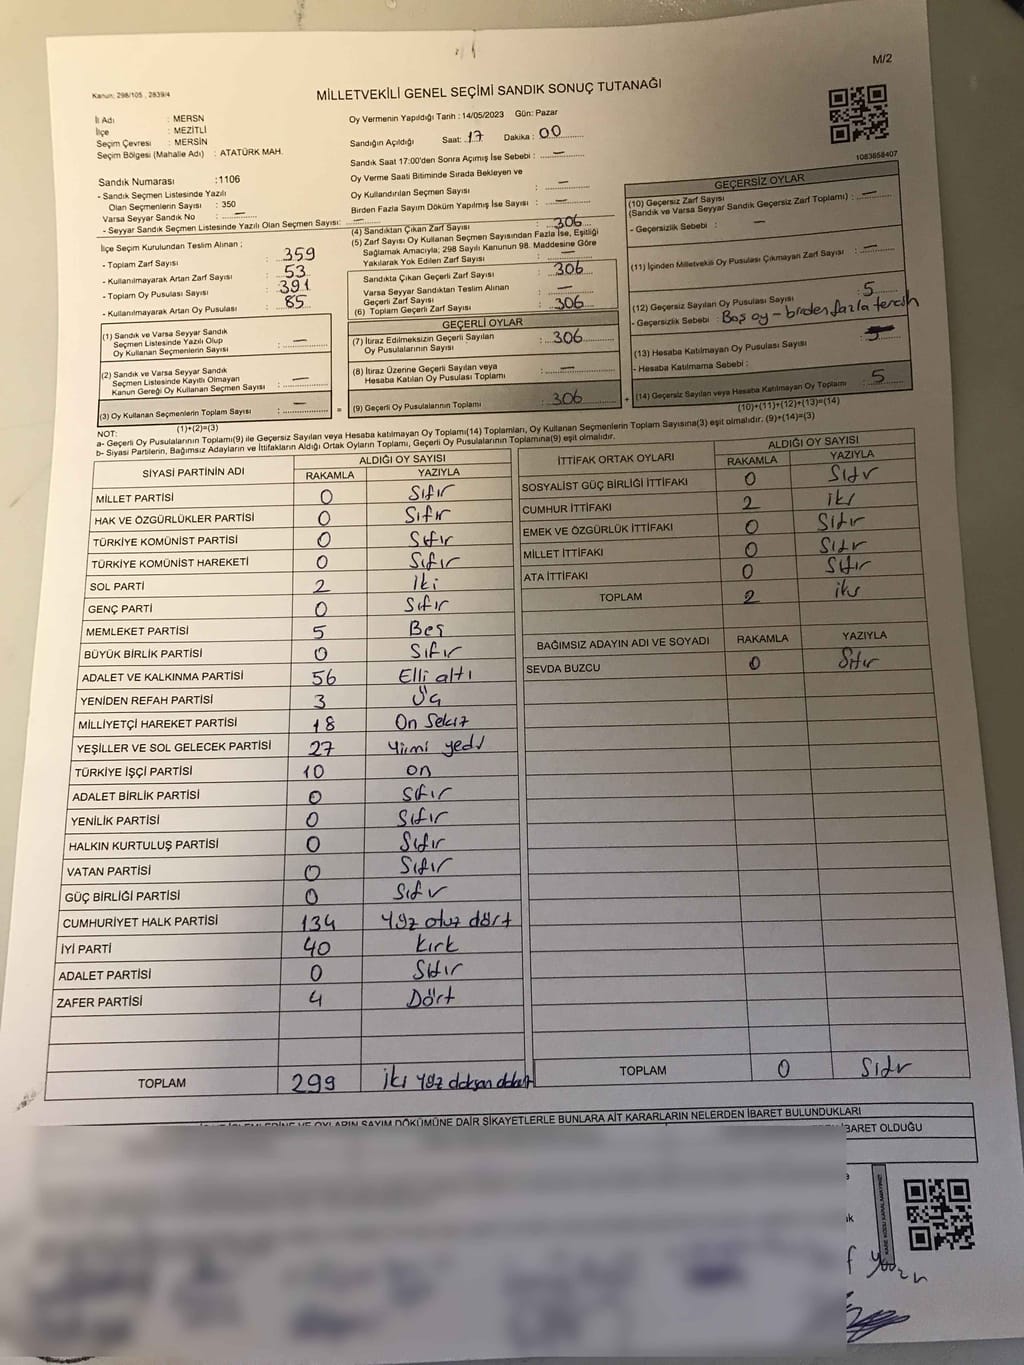 M/2
Kanun: 298/105 , 2839/4
MİLLETVEKİLİ GENEL SEÇİMİ SANDIK SONUÇ TUTANAĞI
İl Adı : MERSN
İlçe : MEZİTLİ
Seçim Çevresi : MERSİN
Seçim Bölgesi (Mahalle Adı) : ATATÜRK MAH.
Oy Vermenin Yapıldığı Tarih : 14/05/2023 Gün: Pazar
Sandığın Açıldığı Saat: 17 Dakika : 00
Sandık Saat 17:00'den Sonra Açımış İse Sebebi : —
Oy Verme Saati Bitiminde Sırada Bekleyen ve
Oy Kullandırılan Seçmen Sayısı : —
Birden Fazla Sayım Döküm Yapılmış İse Sayısı : —
1083658407
Sandık Numarası : 1106
- Sandık Seçmen Listesinde Yazılı
Olan Seçmenlerin Sayısı : 350
Varsa Seyyar Sandık No : —
- Seyyar Sandık Seçmen Listesinde Yazılı Olan Seçmen Sayısı: —
İlçe Seçim Kurulundan Teslim Alınan ;
- Toplam Zarf Sayısı : 359
- Kullanılmayarak Artan Zarf Sayısı : 53
- Toplam Oy Pusulası Sayısı : 391
- Kullanılmayarak Artan Oy Pusulası : 85
(1) Sandık ve Varsa Seyyar Sandık
Seçmen Listesinde Yazılı Olup
Oy Kullanan Seçmenlerin Sayısı : —
(2) Sandık ve Varsa Seyyar Sandık
Seçmen Listesinde Kayıtlı Olmayan
Kanun Gereği Oy Kullanan Seçmen Sayısı : —
(3) Oy Kullanan Seçmenlerin Toplam Sayısı : — =
(1)+(2)=(3)
(4) Sandıktan Çıkan Zarf Sayısı : 306
(5) Zarf Sayısı Oy Kullanan Seçmen Sayısından Fazla İse, Eşitliği
Sağlamak Amacıyla; 298 Sayılı Kanunun 98. Maddesine Göre
Yakılarak Yok Edilen Zarf Sayısı : —
Sandıkta Çıkan Geçerli Zarf Sayısı : 306
Varsa Seyyar Sandıktan Teslim Alınan
Geçerli Zarf Sayısı : —
(6) Toplam Geçerli Zarf Sayısı : 306
GEÇERLİ OYLAR
(7) İtiraz Edilmeksizin Geçerli Sayılan
Oy Pusulalarının Sayısı : 306
(8) İtiraz Üzerine Geçerli Sayılan veya
Hesaba Katılan Oy Pusulası Toplamı : —
(9) Geçerli Oy Pusulalarının Toplamı : 306 +
GEÇERSİZ OYLAR
(10) Geçersiz Zarf Sayısı
(Sandık ve Varsa Seyyar Sandık Geçersiz Zarf Toplamı) : —
- Geçersizlik Sebebi : —
(11) İçinden Milletvekili Oy Pusulası Çıkmayan Zarf Sayısı : —
(12) Geçersiz Sayılan Oy Pusulası Sayısı : 5
- Geçersizlik Sebebi : Boş oy – birden fazla tercih
(13) Hesaba Katılmayan Oy Pusulası Sayısı
- Hesaba Katılmama Sebebi :
(14) Geçersiz Sayılan veya Hesaba Katılmayan Oy Toplamı : 5
(10)+(11)+(12)+(13)=(14)
NOT:
a- Geçerli Oy Pusulalarının Toplamı(9) ile Geçersiz Sayılan veya Hesaba katılmayan Oy Toplamı(14) Toplamları, Oy Kullanan Seçmenlerin Toplam Sayısına(3) eşit olmalıdır. (9)+(14)=(3)
b- Siyasi Partilerin, Bağımsız Adayların ve İttifakların Aldığı Ortak Oyların Toplamı, Geçerli Oy Pusulalarının Toplamına(9) eşit olmalıdır.
SİYASİ PARTİNİN ADI ALDIĞI OY SAYISI
RAKAMLA YAZIYLA
MİLLET PARTİSİ 0 Sıfır
HAK VE ÖZGÜRLÜKLER PARTİSİ 0 Sıfır
TÜRKİYE KOMÜNİST PARTİSİ 0 Sıfır
TÜRKİYE KOMÜNİST HAREKETİ 0 Sıfır
SOL PARTİ 2 İki
GENÇ PARTİ 0 Sıfır
MEMLEKET PARTİSİ 5 Beş
BÜYÜK BİRLİK PARTİSİ 0 Sıfır
ADALET VE KALKINMA PARTİSİ 56 Elli altı
YENİDEN REFAH PARTİSİ 3 Üç
MİLLİYETÇİ HAREKET PARTİSİ 18 On Sekiz
YEŞİLLER VE SOL GELECEK PARTİSİ 27 Yirmi yedi
TÜRKİYE İŞÇİ PARTİSİ 10 on
ADALET BİRLİK PARTİSİ 0 Sıfır
YENİLİK PARTİSİ 0 Sıfır
HALKIN KURTULUŞ PARTİSİ 0 Sıfır
VATAN PARTİSİ 0 Sıfır
GÜÇ BİRLİĞİ PARTİSİ 0 Sıfır
CUMHURİYET HALK PARTİSİ 134 Yüz otuz dört
İYİ PARTİ 40 Kırk
ADALET PARTİSİ 0 Sıfır
ZAFER PARTİSİ 4 Dört
TOPLAM 299 İki yüz doksan dokuz
İTTİFAK ORTAK OYLARI ALDIĞI OY SAYISI
RAKAMLA YAZIYLA
SOSYALİST GÜÇ BİRLİĞİ İTTİFAKI 0 Sıfır
CUMHUR İTTİFAKI 2 iki
EMEK VE ÖZGÜRLÜK İTTİFAKI 0 Sıfır
MİLLET İTTİFAKI 0 Sıfır
ATA İTTİFAKI 0 Sıfır
TOPLAM 2 iki
BAĞIMSIZ ADAYIN ADI VE SOYADI RAKAMLA YAZIYLA
SEVDA BUZCU 0 Sıfır
TOPLAM 0 Sıfır
OYLARIN SAYIM DÖKÜMÜNE DAİR ŞİKAYETLERLE BUNLARA AİT KARARLARIN NELERDEN İBARET BULUNDUKLARI
İBARET OLDUĞU